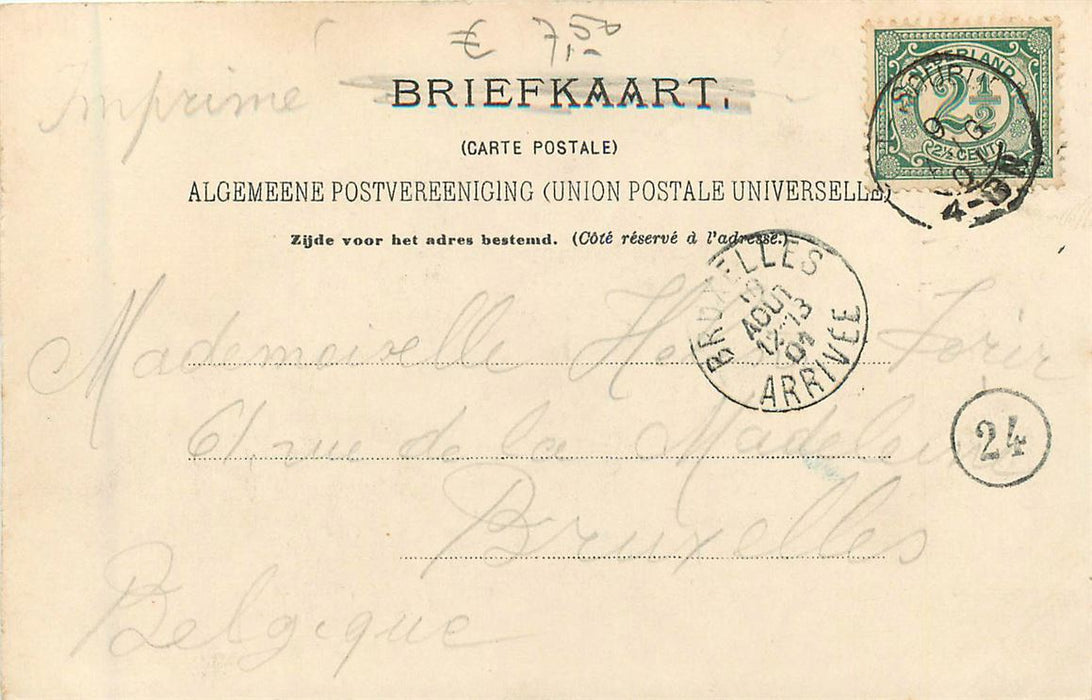 € 7,50
7,-
Imprimé
BRIEFKAART.
(CARTE POSTALE)
ALGEMEENE POSTVEREENIGING (UNION POSTALE UNIVERSELLE)
Zijde voor het adres bestemd. (Côté réservé à l'adresse.)
NEDERLAND
2½
2½ CENT
4-5N
BRUXELLES
AOUT
12-13
01
ARRIVÉE
Mademoiselle
61, rue de la Madeleine
24
Bruxelles
Belgique